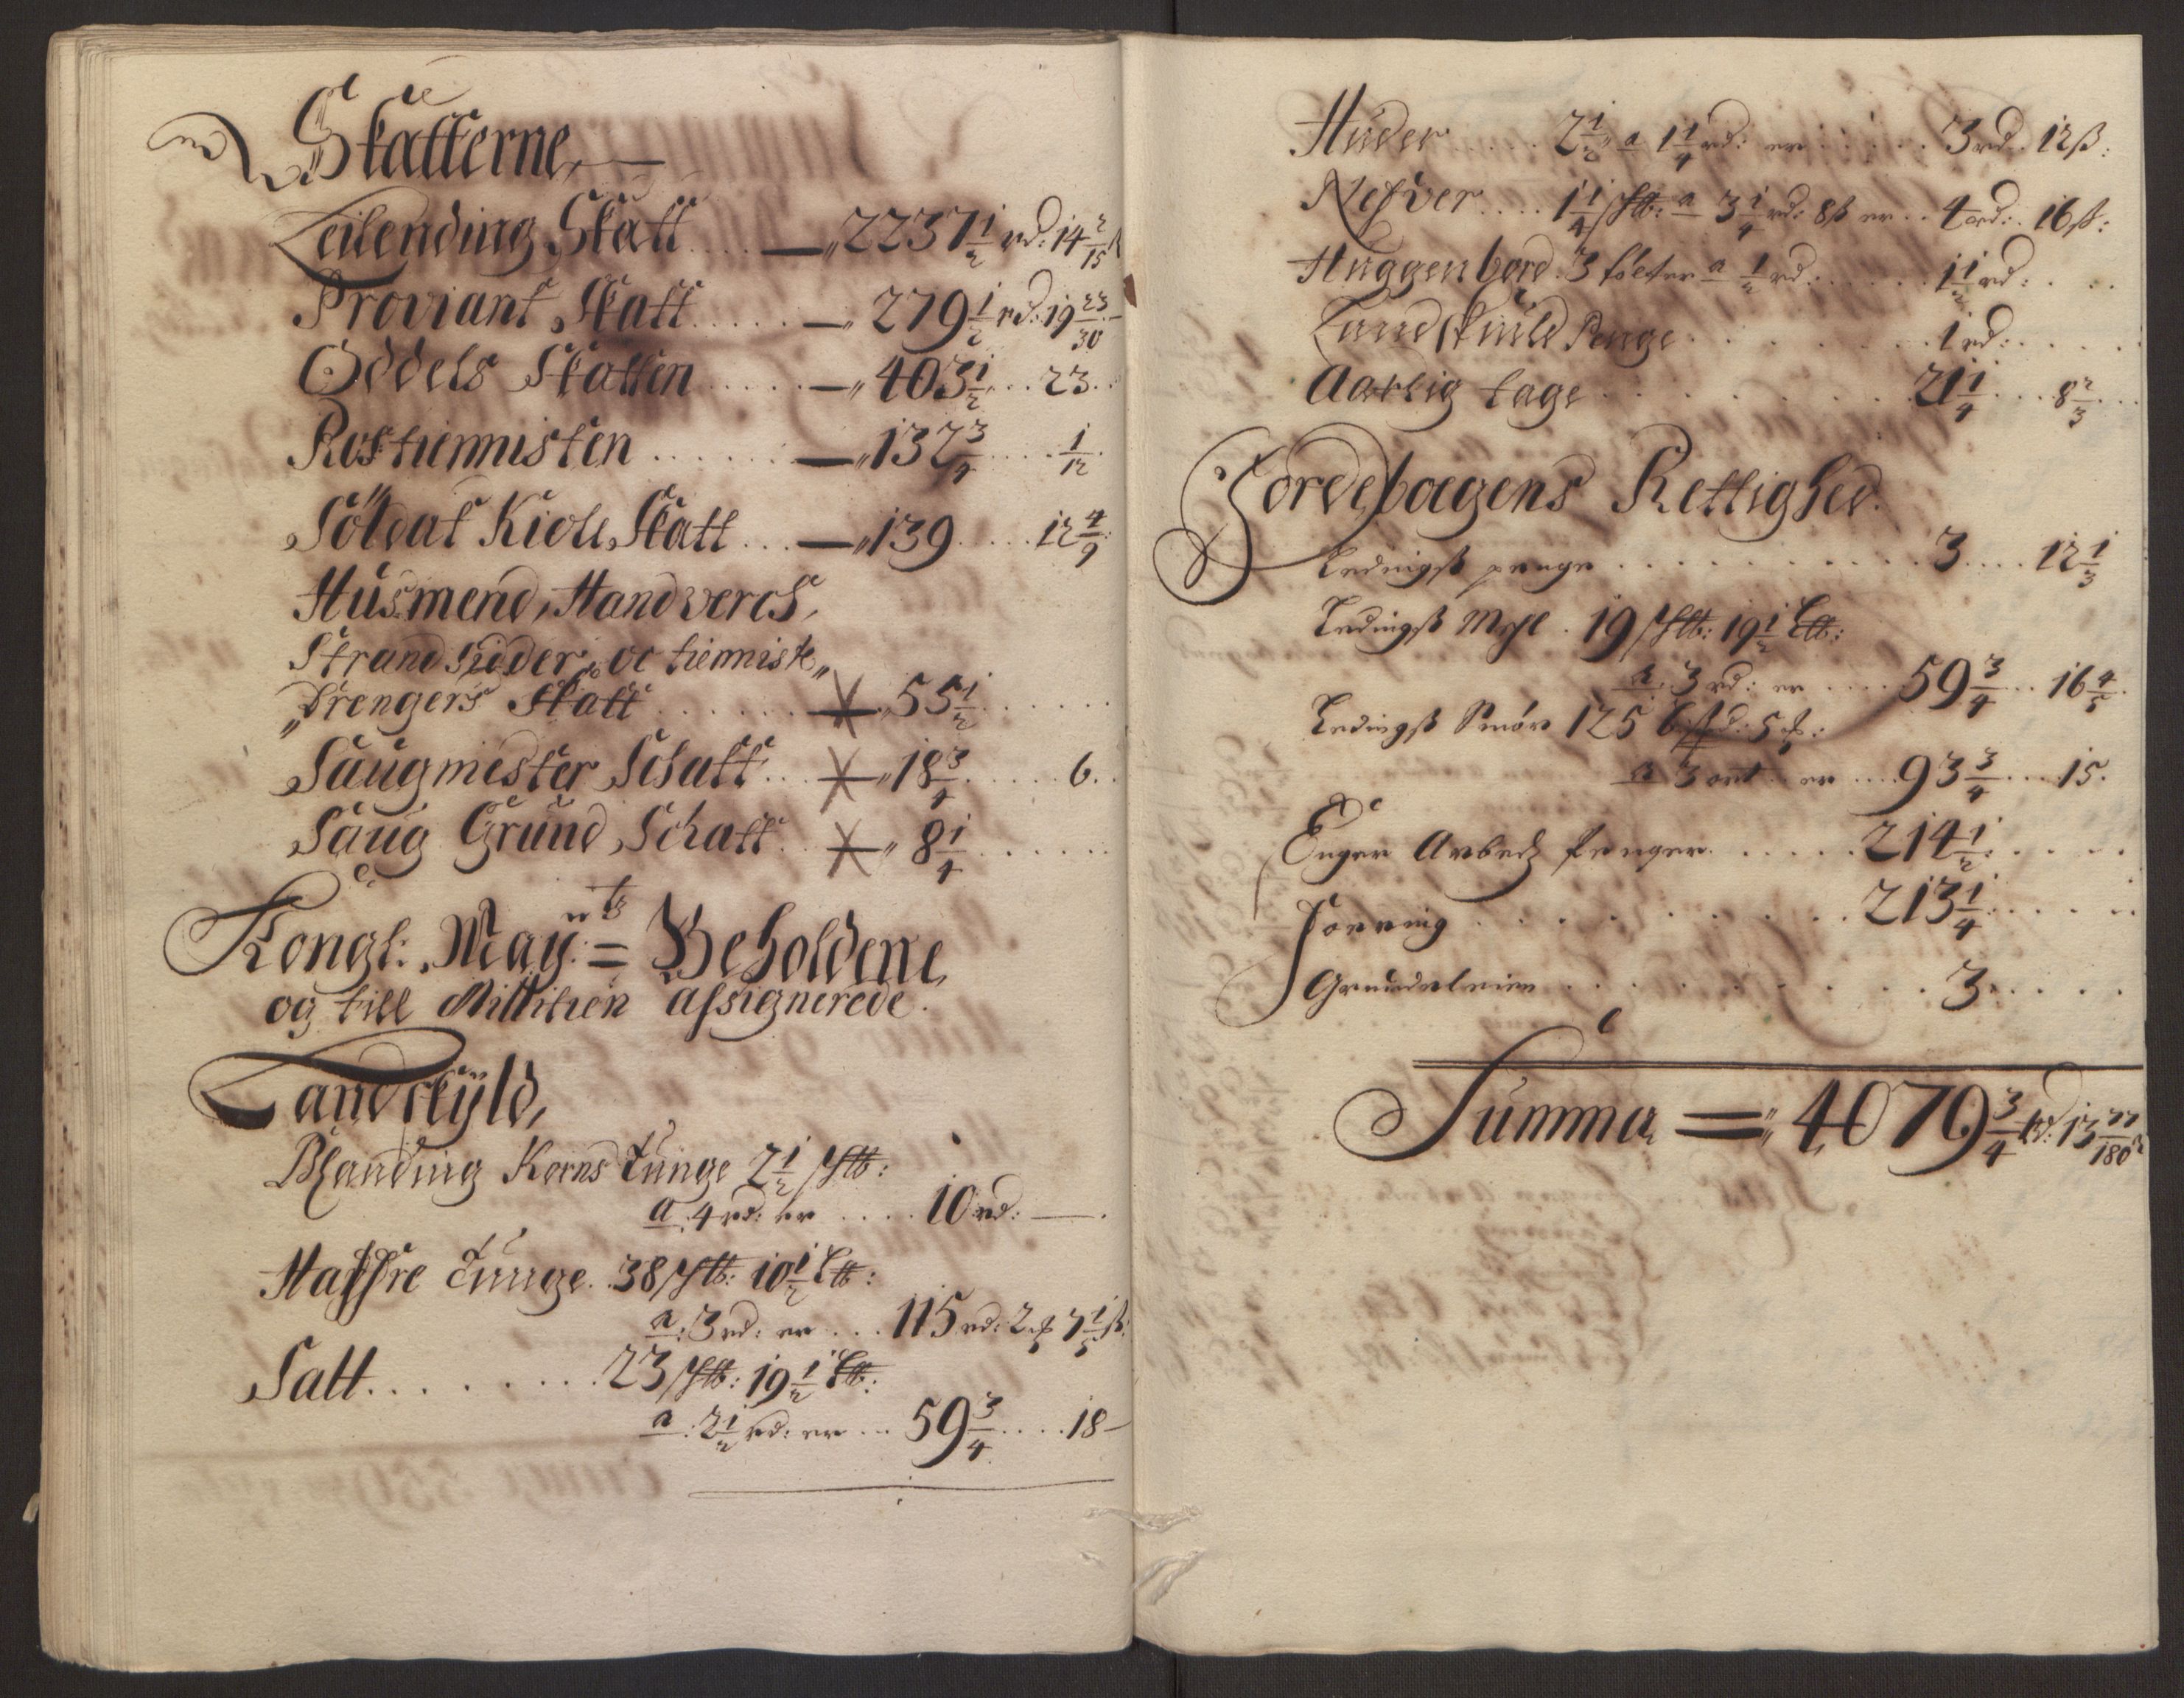 Skatterne,
Leilending Skatt .... — 2237½ rd: 14 2/15 ß
Proviant Skatt ..... — 279½ rd: 19 23/30
Oddels Skatten ..... — 403½ ... 23.
Rostiennisten ...... — 137¾ .... 1/12
Söldat Kiole Skatt ... — 139 .... 12 4/9
Husmend, Handvercs,
Strand sidder, oc tienniste
drengers Skatt ...... — 55½ ......
Saugmester Schatt ... — 18¾ ..... 6.
Saug Grund Schatt .. — 8¼ ......
Kongl: May:tz Beholdene,
og till Militien assignerede.
Landskyld,
Blanding Korns tunge 2½ S℔:
a 4 rd: er .... 10 rd: —.
Haffre tunge. 38 S℔: 10½ L℔:
a: 3 rd: er ... 115 rd: 2 ₰ 7 1/5 ß:
Salt ........ 23 S℔: 19½ L℔:
a: 2½ rd: er ... 59¾ .... 18 —
Huder ..... 2½ a 1¼ rd: er ...... 3 rd. 12 ß:
Nefver .... 1¼ S℔: a 3¼ rd: 8 ß er .. 4 rd: 16 ß:
Huggenbord. 3 tolter a ½ rd: ...... 1½ rd: ...
Landskuld Penge ....... 1 rd: .....
Aarlig tage ......... 21¼ .... 8 2/3 ...
Jordebogens Rettighed.
Ledingß penge ........... 3 .... 12 1/3
Ledingß Mehl. 19 S℔: 19½ L℔:
a: 3 rd: er .... 59¾ ... 16 4/5.
Ledingß Smör 125 bpd: 5 ₰:
a 3 ort er ... 93¾ ... 15.
Enger Arbedz Penger ..... 214½ ....
Foering .......... 213¼ .....
Grundeleien ......... 3 .....
Summa = 4079¾ rd: 13 77/180 ß